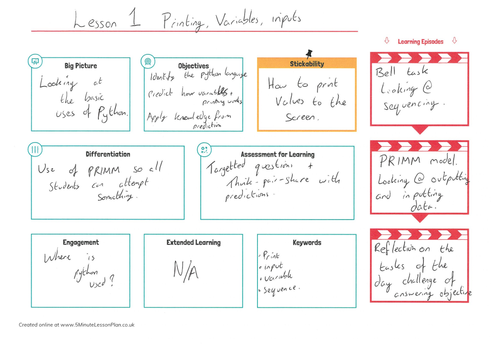 Lesson 1 Printing, Variables, inputs
Big Picture
Looking at
the basic
uses of Python.
Objectives
Identify the python language
Predict how variables +
printing works
Apply knowledge from
prediction
Stickability
How to print
Values to the
Screen.
Differentiation
Use of PRIMM so all
Students can attempt
Something.
Assessment for Learning
Targetted questions +
Think-pair-share with
predictions.
Engagement
Where is
python
used?
Extended Learning
N/A
Keywords
• Print
• input
• Variable
• Sequence.
Learning Episodes
Bell task
Looking @
Sequencing.
PRIMM model.
Looking @ outputting
and inputting
data.
Reflection on the
tasks of the
day challenge of
answering objective
Created online at www.5MinuteLessonPlan.co.uk